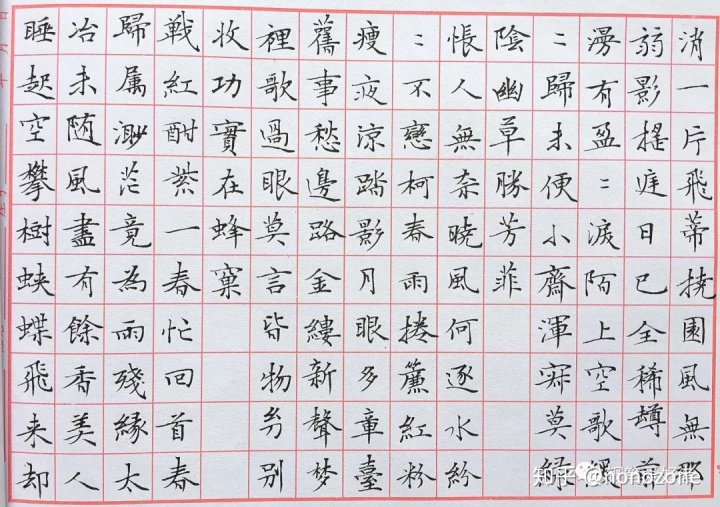 消一片飛蒂撓園風無那
弱影提庭日已全稀罇前
漫有盈〻淚陌上空歌緩
〻歸未便小齋渾寂莫綠
陰幽草勝芳菲
悵人無奈曉風何逐水紛
〻不戀柯春雨捲簾紅粉
瘦夜涼踏影月眼多章臺
舊事愁邊路金縷新聲夢
裡歌過眼莫言皆物分別
收功實在蜂窠
戰紅酣紫一春忙回首春
歸属渺茫竟為雨殘緣太
冶未随風盡有餘香美人
睡起空攀樹蛺蝶飛来却
知乎